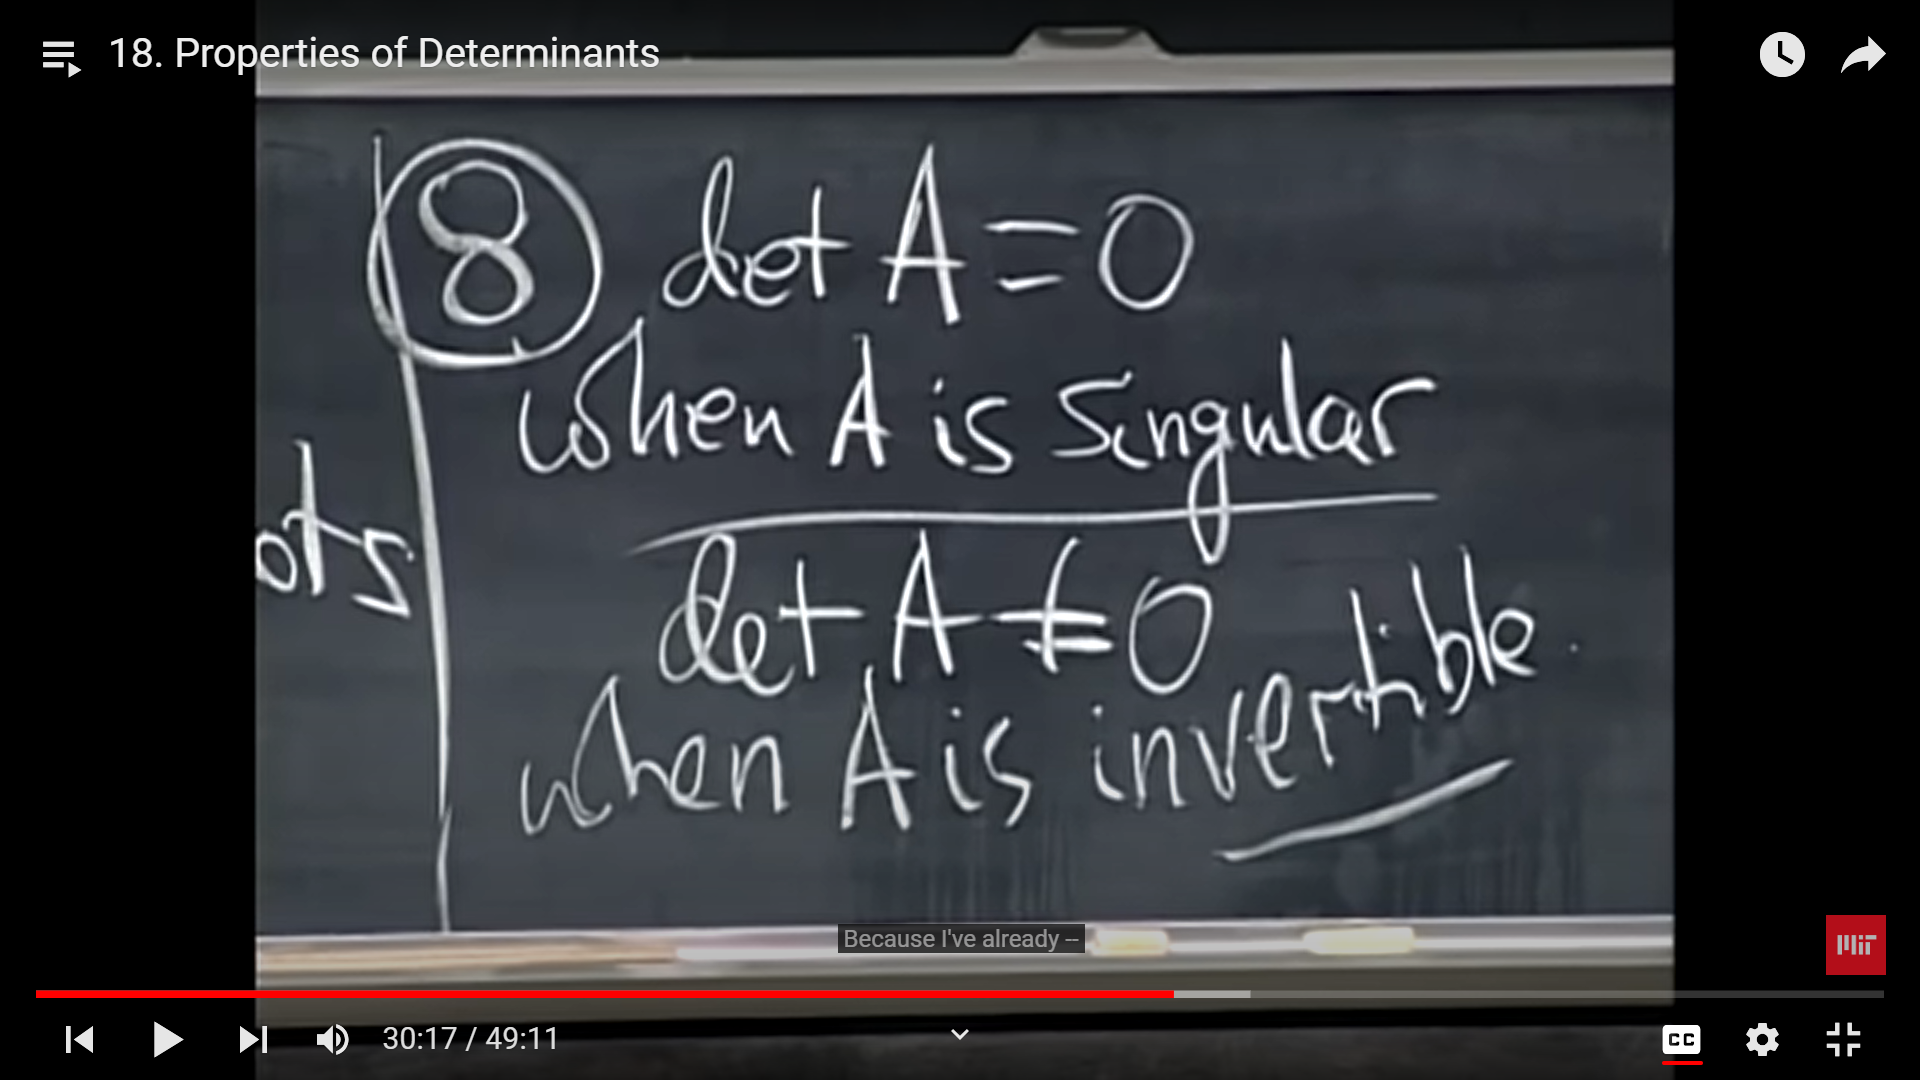 18. Properties of Determinants
8 det A = 0
when A is singular
ots
det A ≠ 0
when A is invertible.
Because I've already --
MIT
30:17 / 49:11
CC